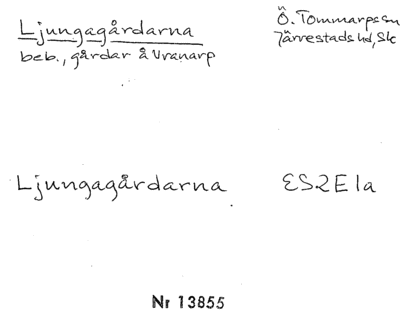 Ljungagårdarna
beb., gårdar å Vranarp
Ö. Tommarps sn
Järrestads hd, Sk
Ljungagårdarna
ES2E1a
Nr 13855